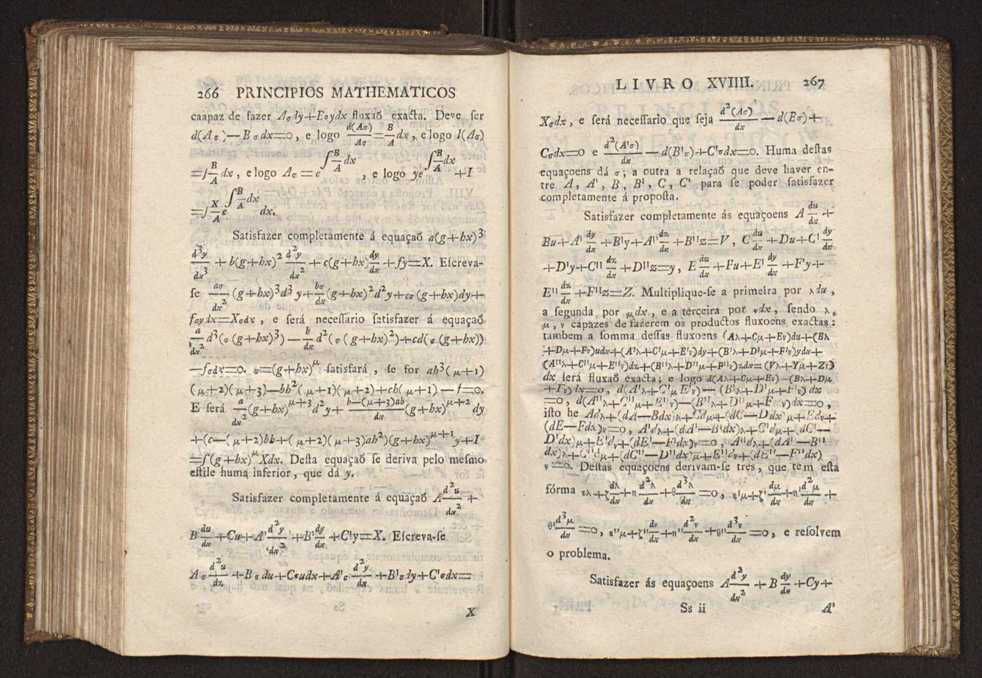 266 PRINCIPIOS MATHEMATICOS
caapaz de fazer Aσdy+Eσydx fluxaõ exacta. Deve ser
d(Aσ)—Bσdx=0, e logo d(Aσ)/Aσ = B/A dx, e logo l(Aσ)
=∫ B/A dx, e logo Aσ=e^{∫ B/A dx}, e logo ye^{∫ B/A dx}+I
=∫ X/A e^{∫ B/A dx} dx.
Satisfazer completamente á equaçaõ a(g+hx)³
d³y/dx³ + b(g+hx)² d²y/dx² + c(g+hx) dy/dx + fy=X. Escreva-
se aσ/dx² (g+hx)³d³y+ bσ/dx (g+hx)²d²y+cσ(g+hx)dy+
fσydx=Xσdx, e será necessario satisfazer á equaçaõ
a/dx² d³(σ(g+hx)³) — b/dx d²(σ(g+hx)²)+cd(σ(g+hx))
—fσdx=0. σ=(g+hx)^μ satisfará, se for ah³(μ+1)
(μ+2)(μ+3)—bh²(μ+1)(μ+2)+ch(μ+1)—f=0.
E será a/dx² (g+hx)^{μ+3} d²y+ b—(μ+3)ah/dx (g+hx)^{μ+2} dy
+(c—(μ+2)bh+(μ+2)(μ+3)ah²)(g+hx)^{μ+1}y+I
=∫(g+hx)^μ Xdx. Desta equaçaõ se deriva pelo mesmo
estile huma inferior, que dá y.
Satisfazer completamente á equaçaõ A d²u/dx² +
B du/dx +Cu+A' d²y/dx² +B' dy/dx +C'y=X. Escreva-se
Aσ d²u/dx +Bσdu+Cσudx+A'σ d²y/dx +B'σdy+C'σdx=
X
LIVRO XVIIII. 267
Xσdx, e será necessario que seja d²(Aσ)/dx —d(Bσ)+
Cσdx=0 e d²(A'σ)/dx —d(B'σ)+C'σdx=0. Huma destas
equaçoens dá σ; a outra a relaçaõ que deve haver en-
tre A, A', B, B', C, C' para se poder satisfazer
completamente á proposta.
Satisfazer completamente ás equaçoens A du/dx +
Bu+A' dy/dx +B'y+A'' dz/dx +B''z=V, C du/dx +Du+C' dy/dx
+D'y+C'' dz/dx +D''z=y, E du/dx +Fu+E' dy/dx +F'y+
E'' dz/dx +F''z=Z. Multiplique-se a primeira por λdu,
a segunda por μdx, e a terceira por νdx, sendo λ,
μ, ν capazes de fazerem os productos fluxoens exactas:
tambem a somma dessas fluxoens (Aλ+Cμ+Eν)du+(Bλ
+Dμ+Fν)udx+(A'λ+C'μ+E'ν)dy+(B'λ+D'μ+F'ν)ydx+
(A''λ+C''μ+E''ν)dz+(B''λ+D''μ+F''ν)zdx=(Vλ+Yμ+Zν)
dx será fluxaõ exacta; e logo d(Aλ+Cμ+Eν)—(Bλ+Dμ
+Fν)dx=0, d(A'λ+C'μ+E'ν)—(B'λ+D'μ+F'ν)dx
=0, d(A''λ+C''μ+E''ν)—(B''λ+D''μ+F''ν)dx=0,
isto he Adλ+(dA—Bdx)λ+Cdμ+(dC—Ddx)μ+Edν+
(dE—Fdx)ν=0, A'dλ+(dA'—B'dx)λ+C'dμ+(dC'—
D'dx)μ+E'dν+(dE'—F'dx)ν=0, A''dλ+(dA''—B''
dx)λ+C''dμ+(dC''—D''dx)μ+E''dν+(dE''—F''dx)
ν=0. Destas equaçoens derivam-se tres, que tem esta
fórma ελ+ζ dλ/dx +η d²λ/dx² +θ d³λ/dx³ =0, ε'μ+ζ' dμ/dx +η' d²μ/dx² +
θ' d³μ/dx³ =0, ε''ν+ζ'' dν/dx +η'' d²ν/dx² +θ'' d³ν/dx³ =0, e resolvem
o problema.
Satisfazer ás equaçoens A d²y/dx² +B dy/dx +Cy+
Ss ii A'